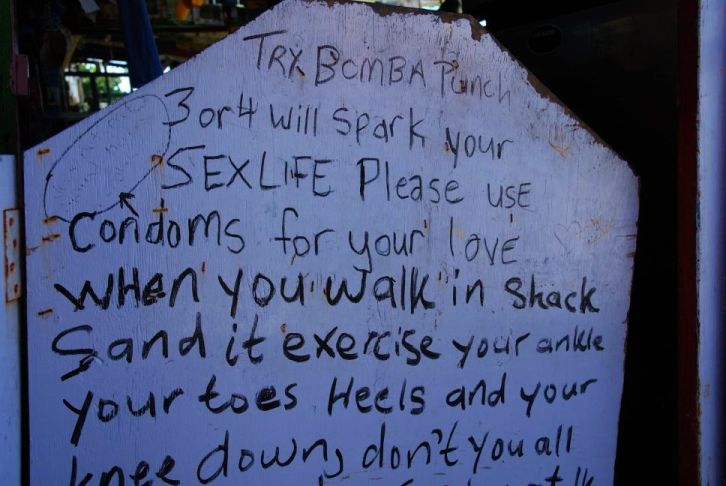 TRX BOMBA Punch
3 or 4 will spark your
SEX LIFE Please USE
condoms for your love
WHen you walk in Shack
Sand it exercise your ankle
your toes Heels and your
knee down, don't you all